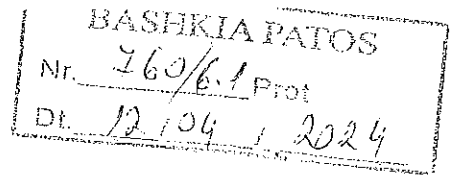 BASHKIA PATOS
Nr. 760/6.1 Prot
Dt. 12 / 04 / 2024